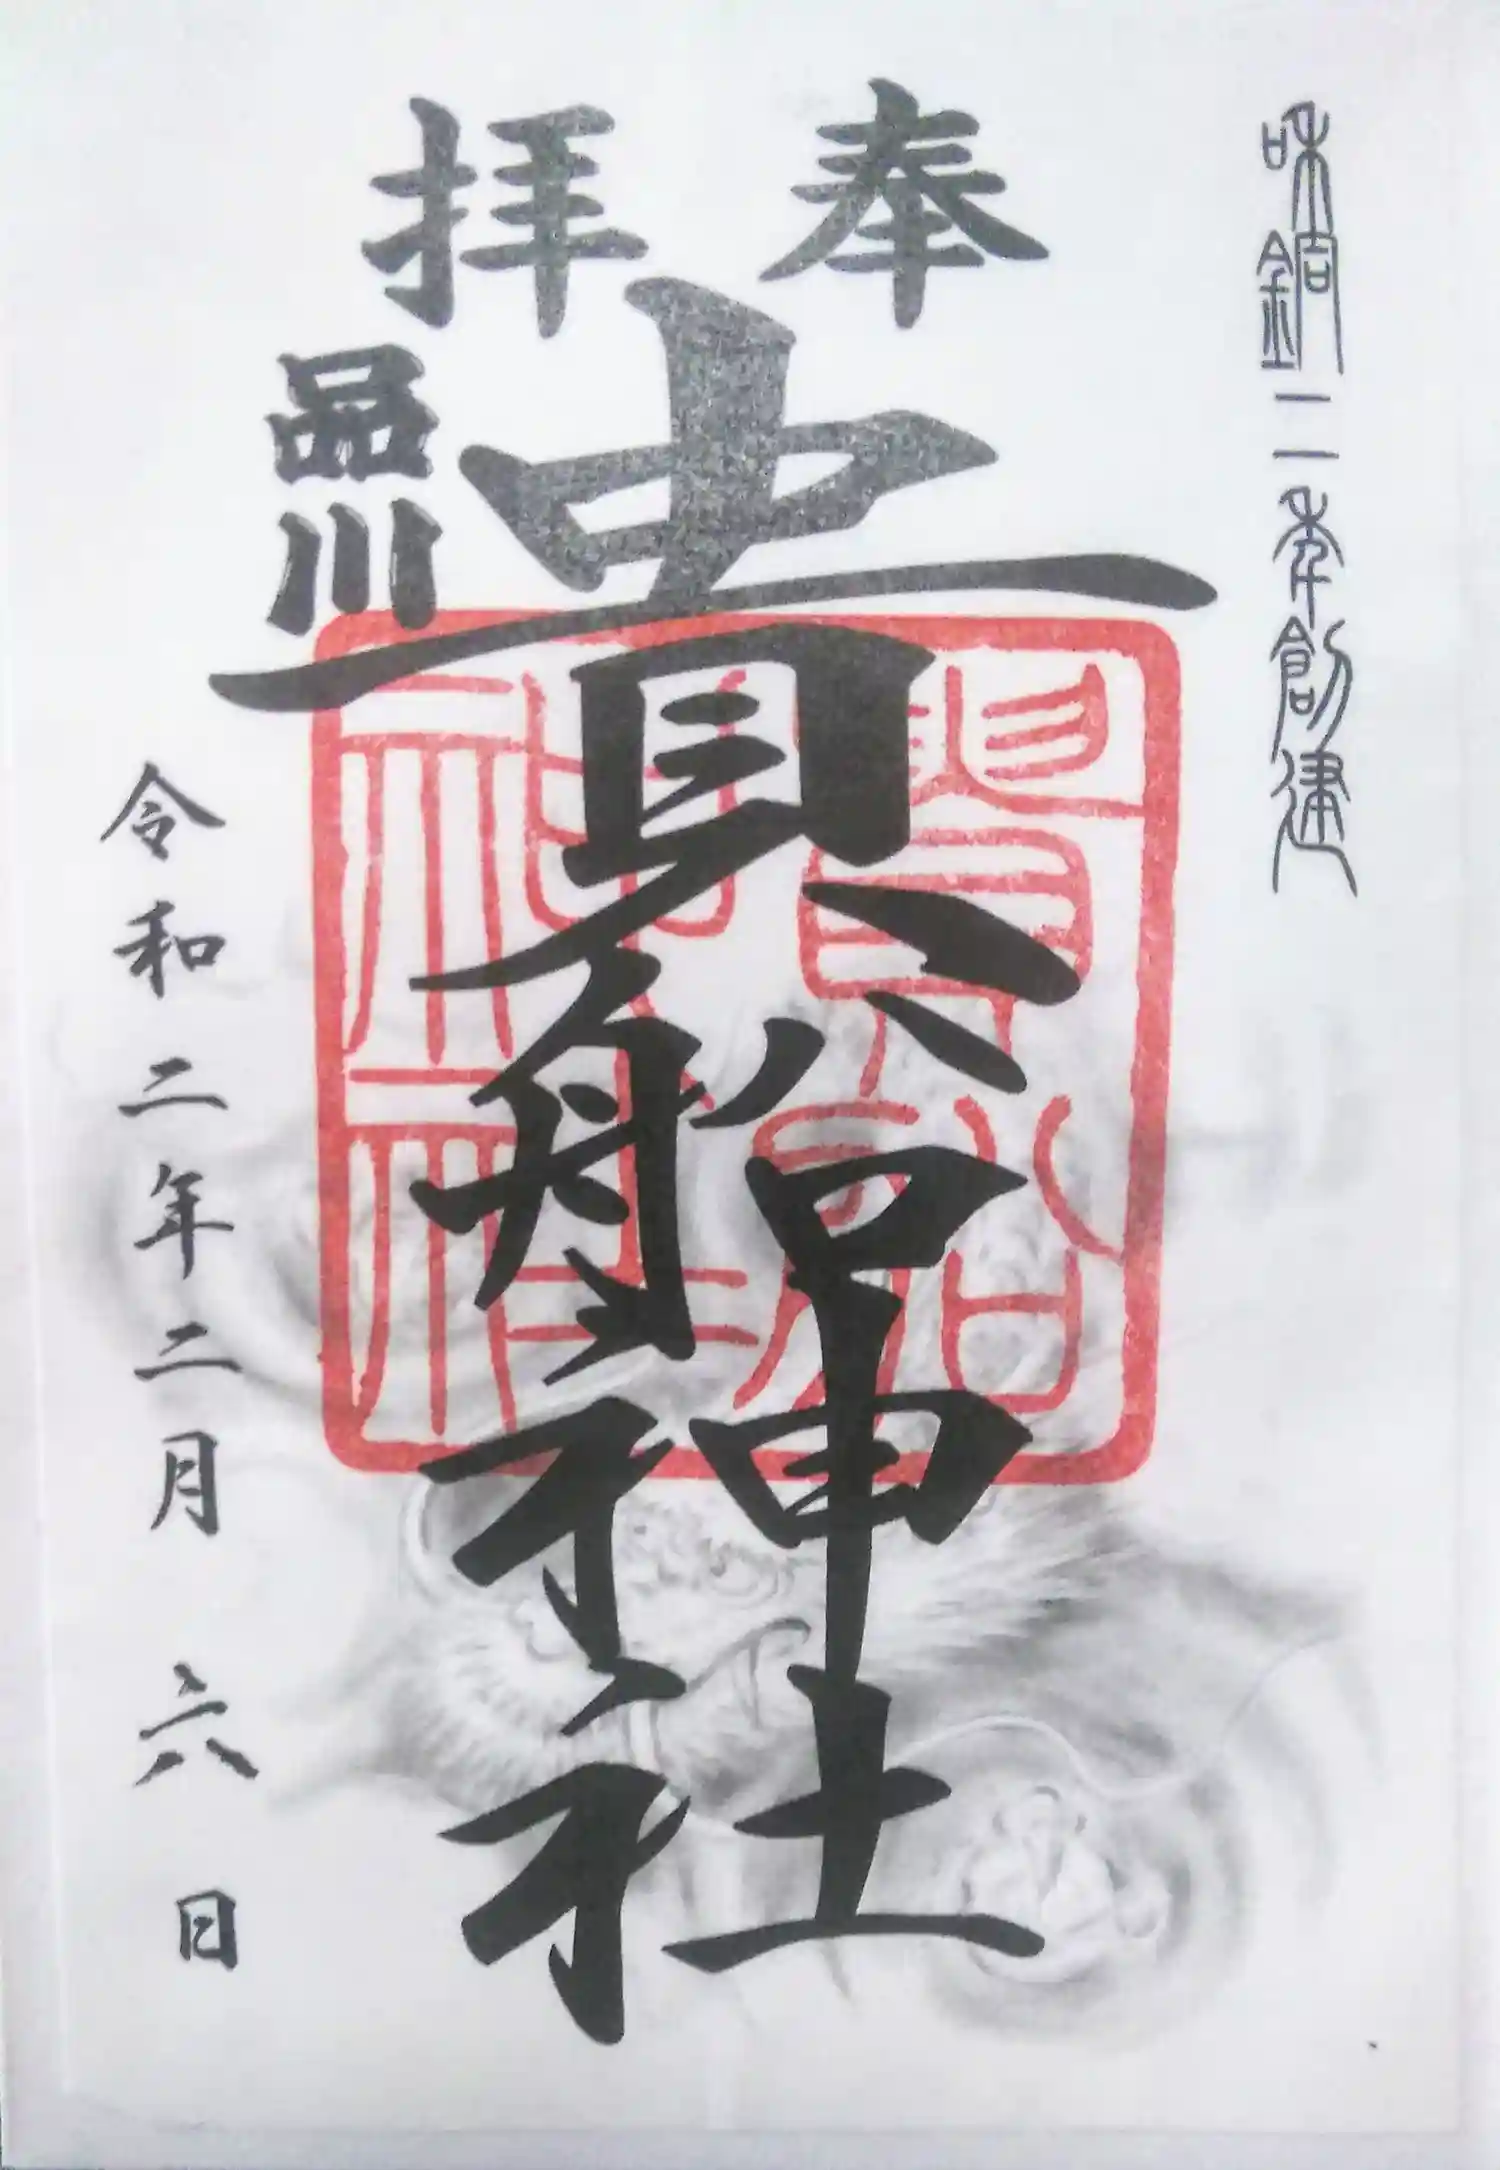 和銅二年創建
奉拝
貴船神社
品川
貴船神社
令和二年二月六日